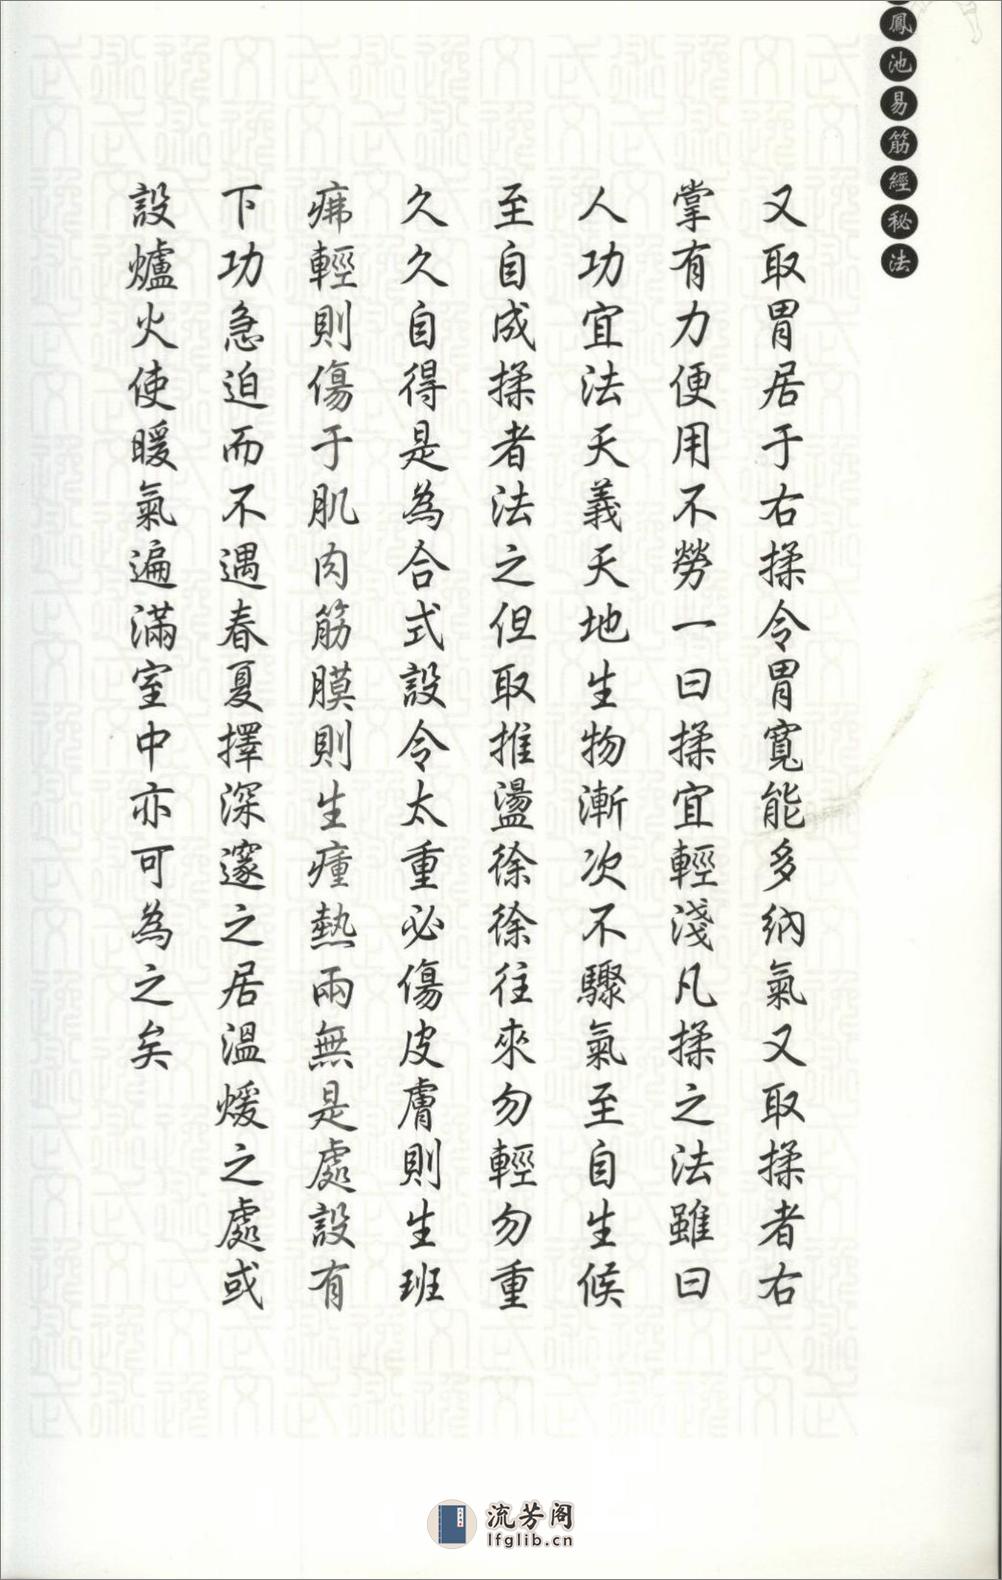 鳳池易筋經秘法
又取胃居于右揉令胃寬能多納氣又取揉者右
掌有力便用不勞一曰揉宜輕淺凡揉之法雖曰
人功宜法天義天地生物漸次不驟氣至自生候
至自成揉者法之但取推盪徐徐往來勿輕勿重
久久自得是為合式設令太重必傷皮膚則生班
疿輕則傷于肌肉筋膜則生瘇熱兩無是處設有
下功急迫而不遇春夏擇深邃之居溫煖之處或
設爐火使暖氣遍滿室中亦可為之矣
流芳阁
lfglib.cn